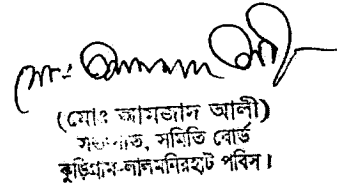 মোঃ আমজাদ আলী
(মোঃ আমজাদ আলী)
সভাপতি, সমিতি বোর্ড
কুড়িগ্রাম-লালমনিরহাট পবিস।